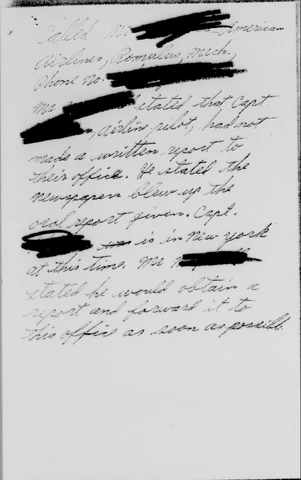 Called Mr American
Airlines, Romulus, Mich,
Phone No.
Mr stated that Capt
, Airline pilot, had not
made a written report to
their office. He stated the
newspaper blew up the
oral report given. Capt.
is in New York
at this time. Mr
stated he would obtain a
report and forward it to
this office as soon as possible.